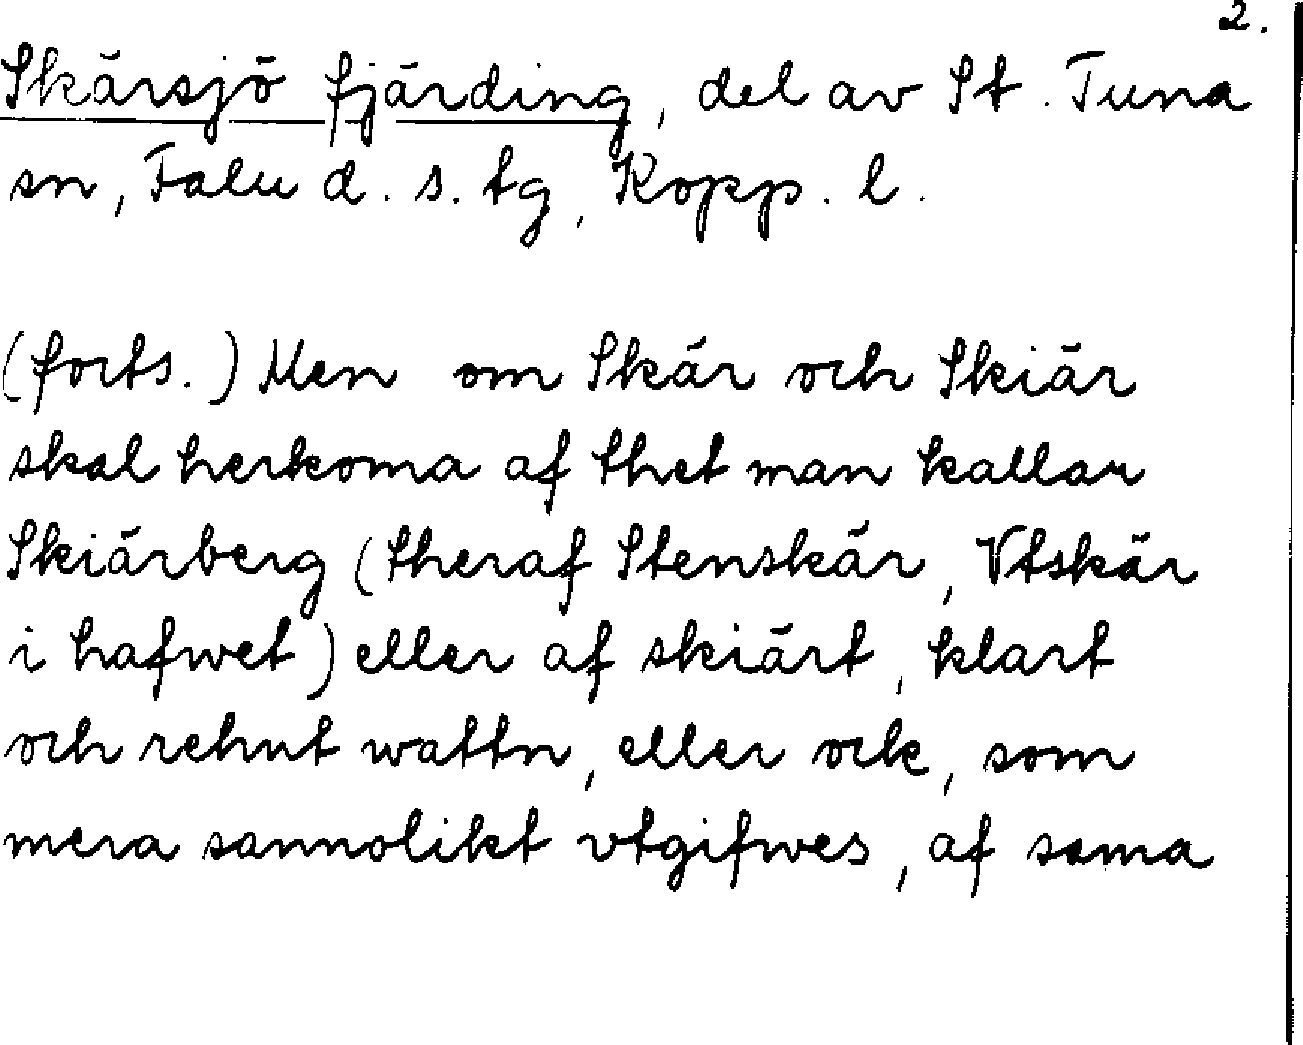 2.
Skärsjö fjärding, del av St. Tuna
sn, Falu d. s. tg, Kopp. l.
(forts.) Men om Skär och Skiär
skal herkoma af thet man kallar
Skiärberg (theraf Stenskär, Vtskär
i hafwet) eller af skiärt, klart
och rehnt wattn, eller ock, som
mera sannolikt vtgifwes, af sama